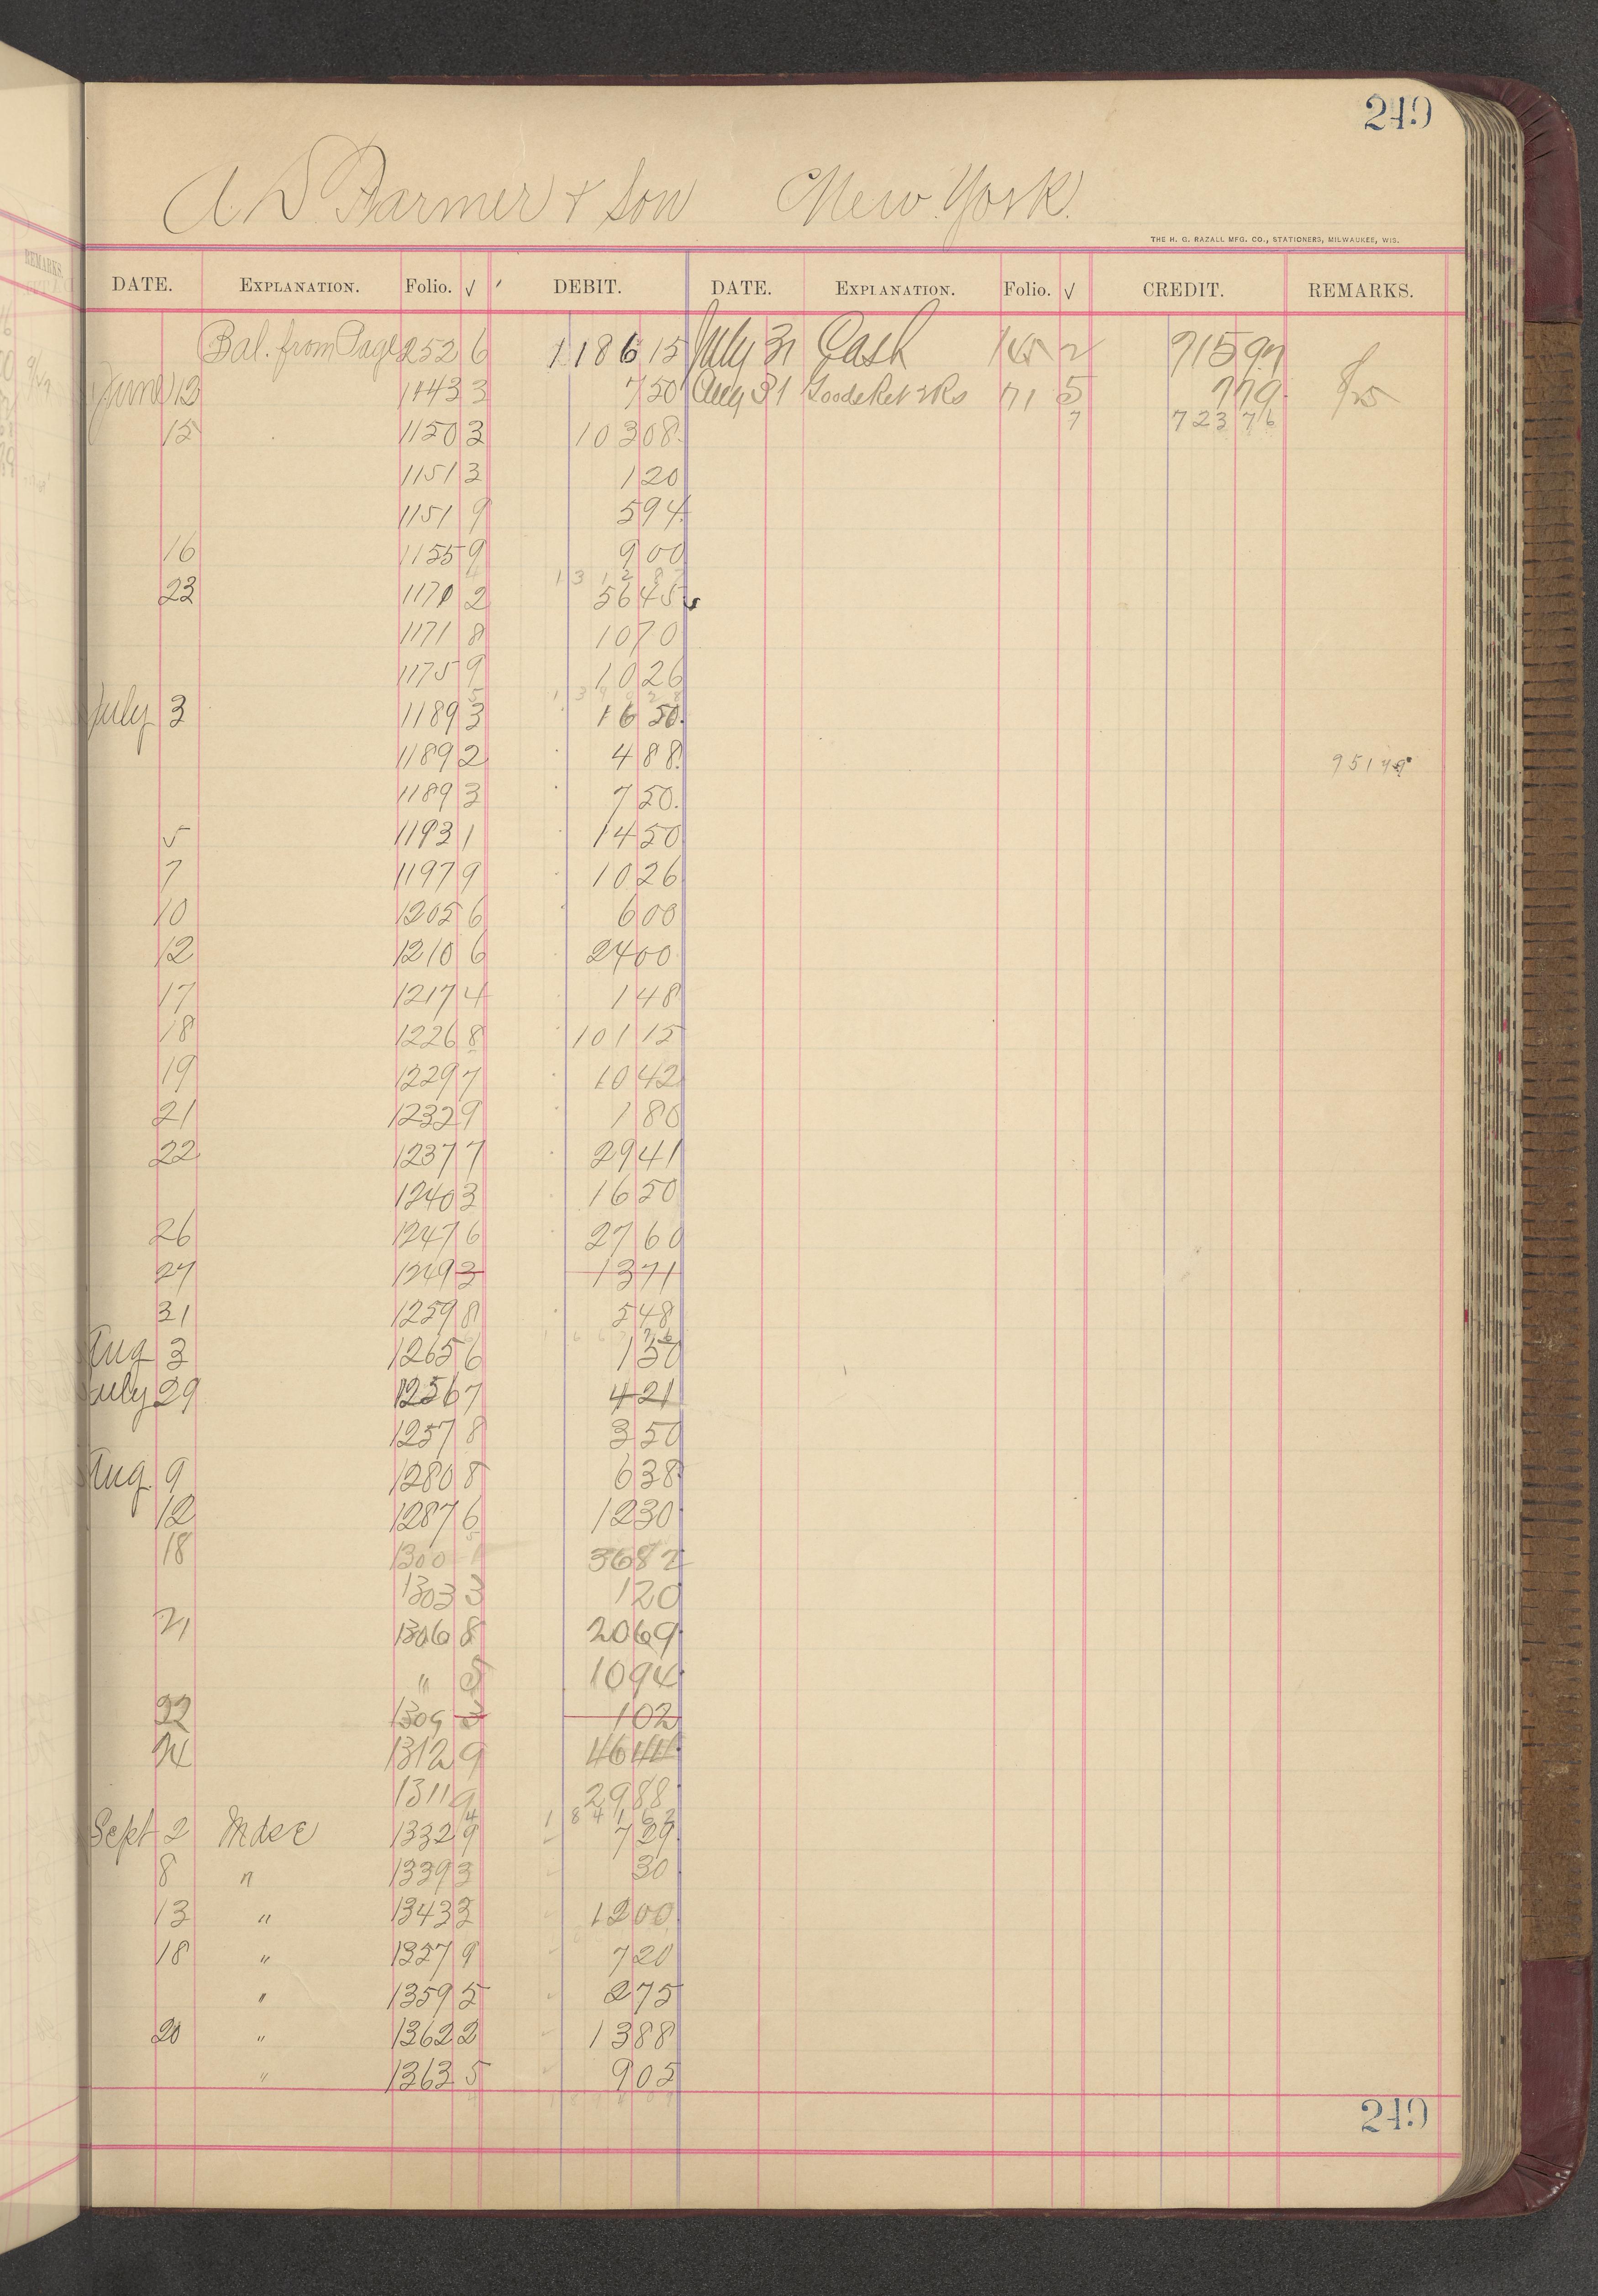 249
A. D. Farmer & Son New York.
THE H. G. RAZALL MFG. CO., STATIONERS, MILWAUKEE, WIS.
DATE. EXPLANATION. Folio. √ DEBIT. DATE. EXPLANATION. Folio. √ CREDIT. REMARKS.
Bal. from Page 252 6 1186 15 July 31 Cash 2 715 97
June 13 1143 3 7 50 Aug 31 Goods Ret 71 5 7 79
15 1150 3 103 08 7 723 76
1151 3 1 20
1151 9 5 94
16 1155 9 9 00
23 1170 2 56 45
1171 8 10 70
1175 9 10 26
July 3 1189 3 16 50
1189 2 4 88
1189 3 7 50
5 1193 1 14 50
7 1197 9 10 26
10 1205 6 6 00
12 1210 6 24 00
17 1217 4 1 48
18 1226 8 101 15
19 1229 7 10 42
21 1232 9 1 80
22 1237 7 29 41
1240 3 16 50
26 1247 6 27 60
27 1249 3 13 71
31 1259 8 5 48
Aug 3 1265 6 1 50
July 29 1256 7 4 21
1257 8 3 50
Aug. 9 1280 8 6 38
12 1287 6 12 30
18 1300 36 82
1303 3 1 20
21 1306 8 20 69
" 5 10 94
22 1309 3 1 02
24 1312 9 46 44
1311 9 29 88
1841 62
Sept 2 Mdse 1332 9 7 29
8 " 1339 3 30
13 " 1343 3 12 00
18 " 1357 9 7 20
" 1359 5 2 75
20 " 1362 2 13 88
" 1363 5 9 05
249